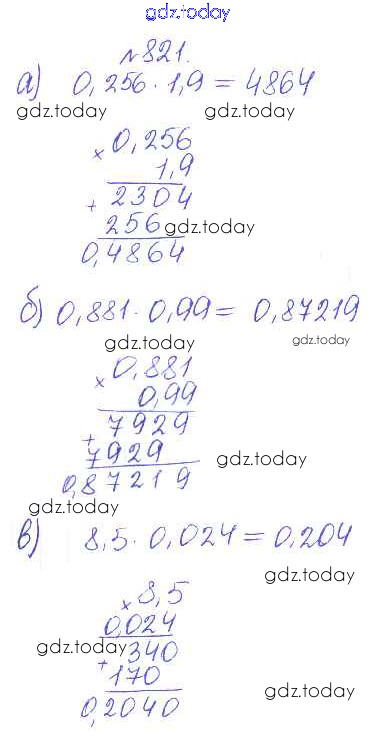 gdz.today
№821.
а) 0,256 · 1,9 = 4864
gdz.today gdz.today
× 0,256
1,9
+ 2304
256 gdz.today
0,4864
б) 0,881 · 0,99 = 0,87219
gdz.today gdz.today
× 0,881
0,99
+ 7929
7929 gdz.today
0,87219
gdz.today
в) 8,5 · 0,024 = 0,204
gdz.today
× 8,5
0,024
gdz.today + 340
170 gdz.today
0,2040